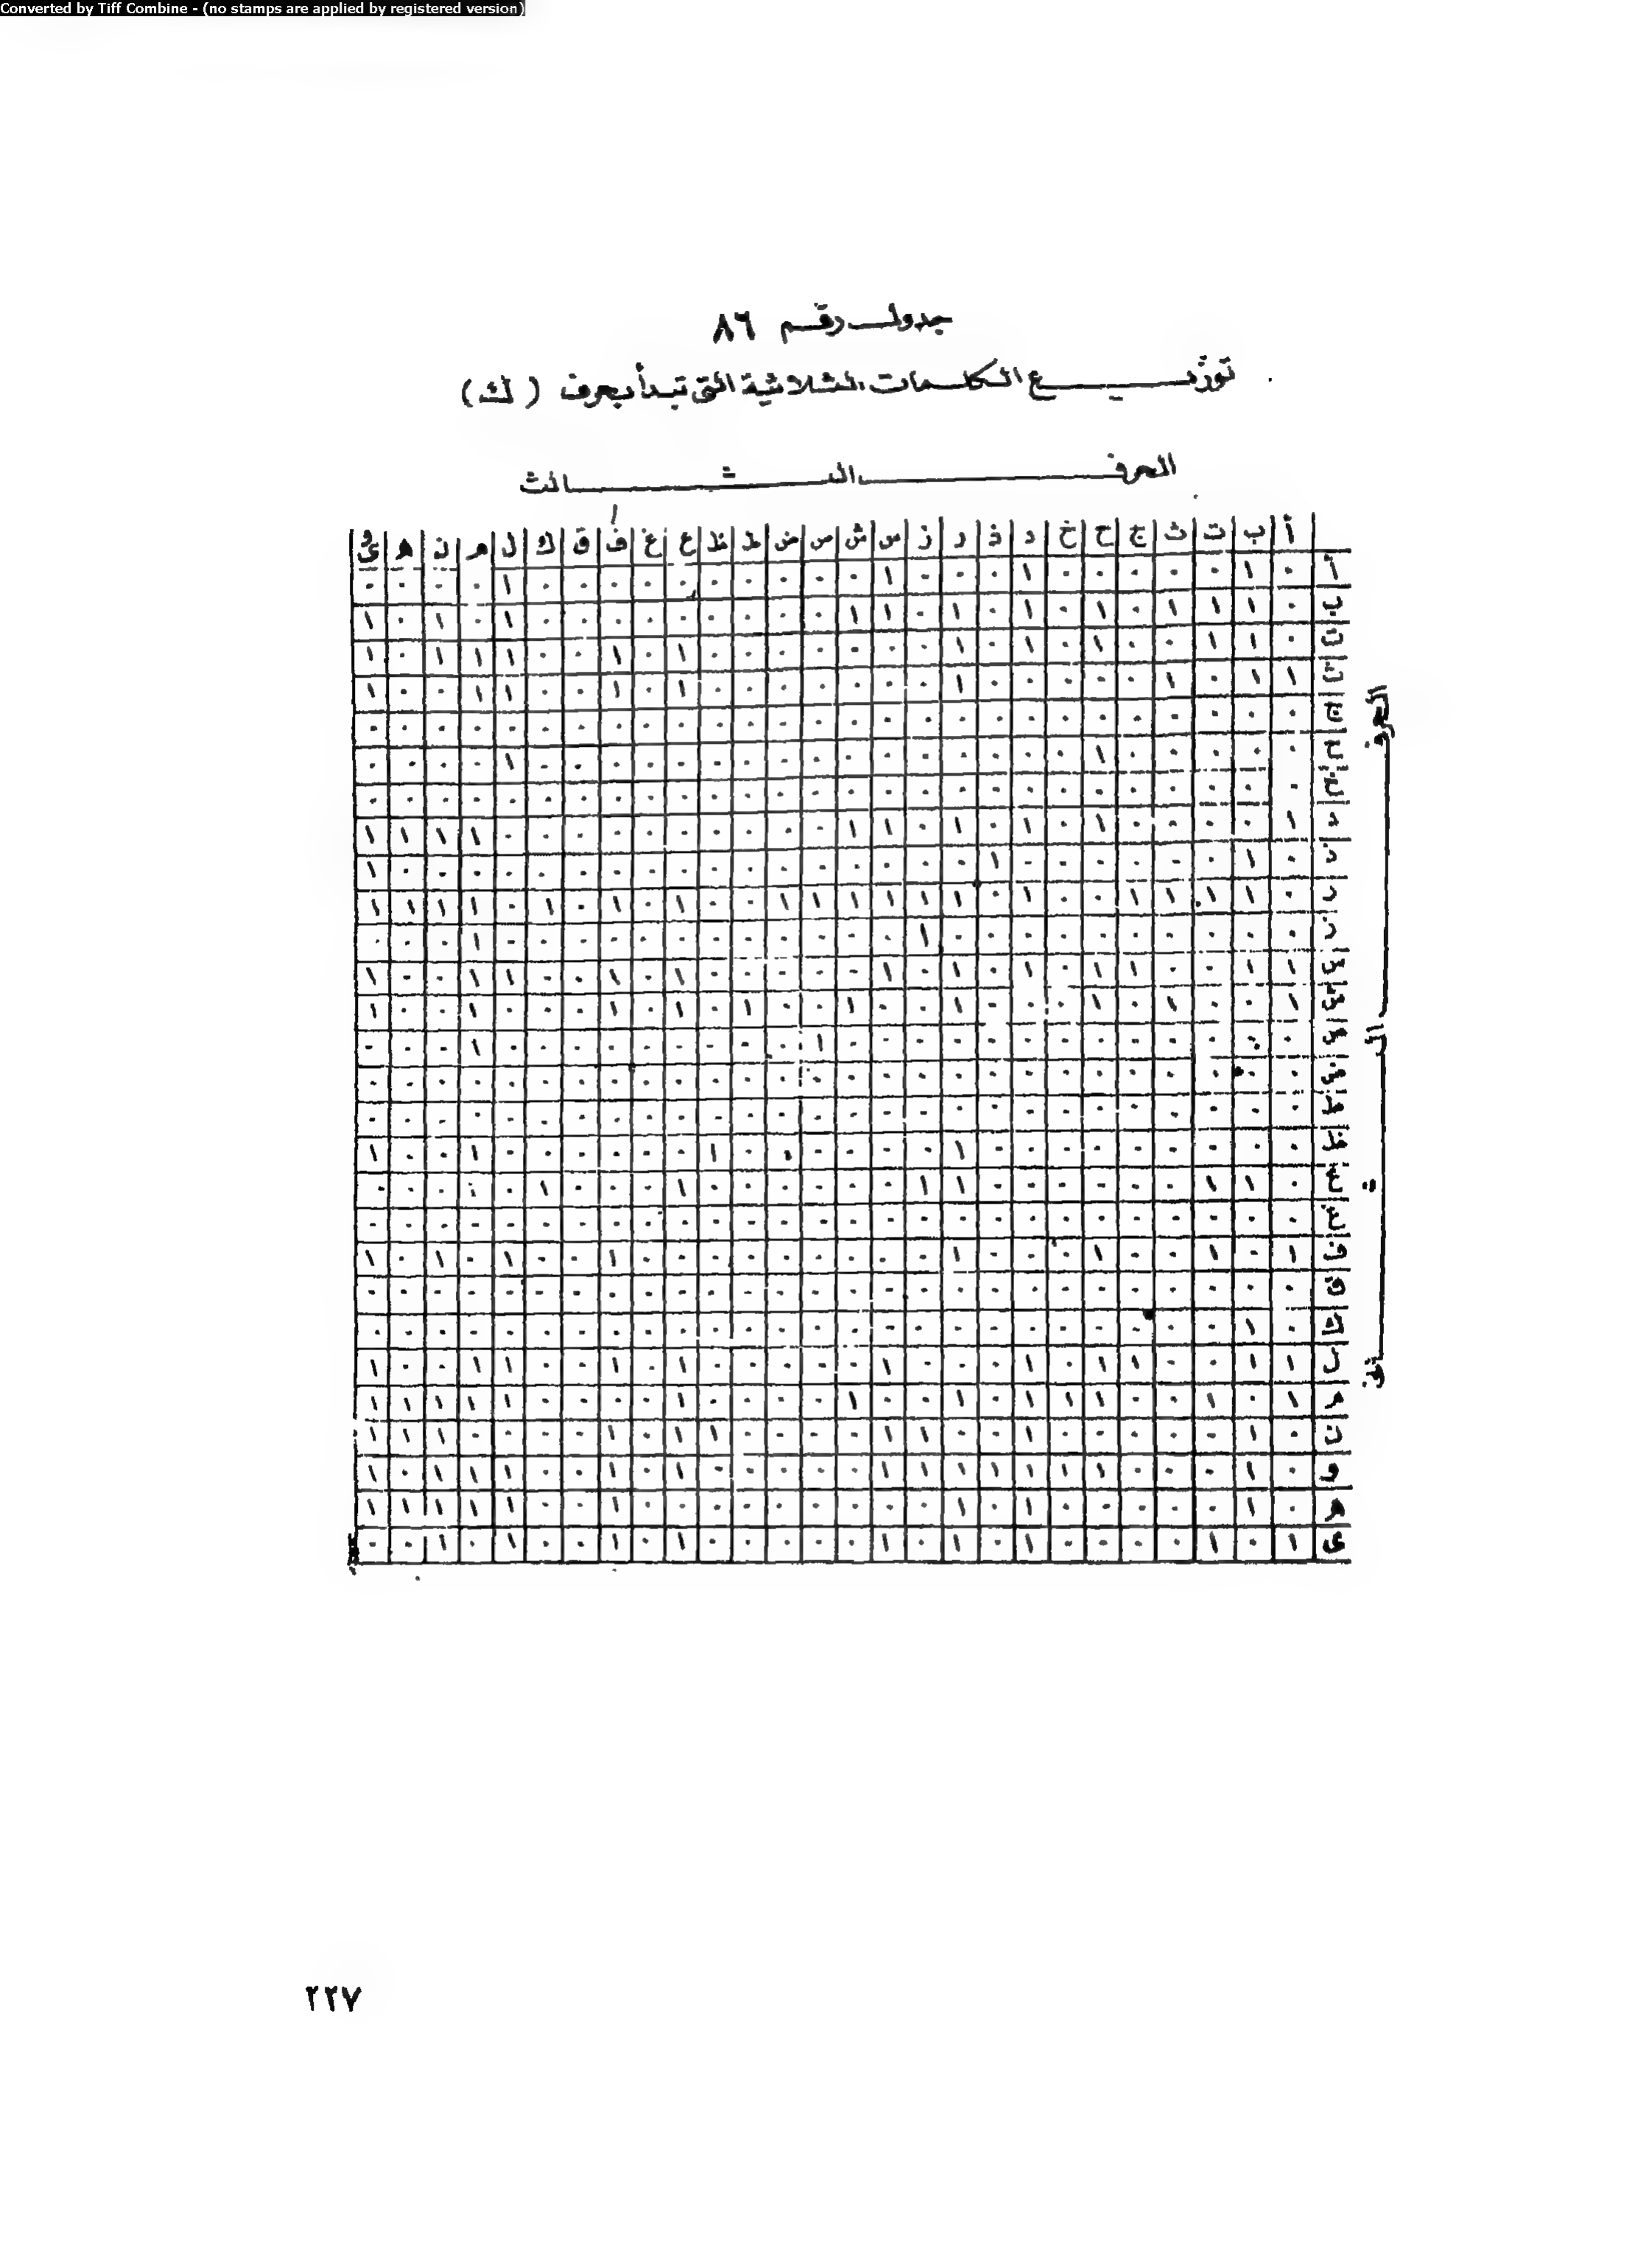 Converted by Tiff Combine - (no stamps are applied by registered version)
جدول رقم ٨٦
توزيع الكلمات الثلاثية التى تبدأ بحرف (ك)
الحرف الثالث
أ ب ت ث ج ح خ د ذ ر ز س ش ص ض ط ظ ع غ ف ق ك ل م ن ه و ى
أ ٠ ١ ٠ ٠ ٠ ٠ ٠ ١ ٠ ٠ ٠ ١ ٠ ٠ ٠ ٠ ٠ ٠ ٠ ٠ ٠ ٠ ١ ٠ ٠ ٠ ٠
ب ٠ ١ ١ ١ ٠ ١ ٠ ١ ٠ ١ ٠ ١ ١ ٠ ٠ ٠ ٠ ٠ ٠ ٠ ٠ ٠ ١ ٠ ١ ٠ ١
ت ٠ ١ ١ ٠ ٠ ١ ٠ ١ ٠ ١ ٠ ٠ ٠ ٠ ٠ ٠ ٠ ١ ٠ ١ ٠ ٠ ١ ١ ١ ٠ ١
ث ١ ١ ٠ ١ ٠ ٠ ٠ ٠ ٠ ١ ٠ ٠ ٠ ٠ ٠ ٠ ٠ ١ ٠ ١ ٠ ٠ ١ ١ ٠ ٠ ١
ج ٠ ٠ ٠ ٠ ٠ ٠ ٠ ٠ ٠ ٠ ٠ ٠ ٠ ٠ ٠ ٠ ٠ ٠ ٠ ٠ ٠ ٠ ٠ ٠ ٠ ٠ ٠
ح ٠ ٠ ٠ ٠ ٠ ١ ٠ ٠ ٠ ٠ ٠ ٠ ٠ ٠ ٠ ٠ ٠ ٠ ٠ ٠ ٠ ٠ ١ ٠ ٠ ٠ ٠
خ ٠ ٠ ٠ ٠ ٠ ٠ ٠ ٠ ٠ ٠ ٠ ٠ ٠ ٠ ٠ ٠ ٠ ٠ ٠ ٠ ٠ ٠ ٠ ٠ ٠ ٠ ٠
د ١ ٠ ٠ ٠ ٠ ١ ٠ ١ ٠ ١ ٠ ١ ١ ٠ ٠ ٠ ٠ ٠ ٠ ٠ ٠ ٠ ٠ ١ ١ ١ ١
ذ ٠ ١ ٠ ٠ ٠ ٠ ٠ ٠ ١ ٠ ٠ ٠ ٠ ٠ ٠ ٠ ٠ ٠ ٠ ٠ ٠ ٠ ٠ ٠ ٠ ٠ ١
ر ٠ ١ ١ ١ ١ ٠ ٠ ١ ٠ ١ ١ ١ ١ ١ ١ ٠ ٠ ١ ٠ ١ ٠ ١ ٠ ١ ١ ١ ١
ز ٠ ٠ ٠ ٠ ٠ ٠ ٠ ٠ ٠ ٠ ١ ٠ ٠ ٠ ٠ ٠ ٠ ٠ ٠ ٠ ٠ ٠ ٠ ١ ٠ ٠ ٠
س ١ ١ ٠ ٠ ١ ١ ٠ ١ ٠ ١ ٠ ١ ٠ ٠ ٠ ٠ ٠ ١ ٠ ١ ٠ ٠ ١ ١ ٠ ٠ ١
ش ١ ٠ ٠ ١ ٠ ١ ٠ ٠ ٠ ١ ٠ ٠ ١ ٠ ٠ ١ ٠ ١ ٠ ١ ٠ ٠ ٠ ١ ٠ ٠ ١
ص ٠ ٠ ٠ ٠ ٠ ٠ ٠ ٠ ٠ ٠ ٠ ٠ ٠ ١ ٠ ٠ ٠ ٠ ٠ ٠ ٠ ٠ ٠ ١ ٠ ٠ ٠
ض ٠ ٠ ٠ ٠ ٠ ٠ ٠ ٠ ٠ ٠ ٠ ٠ ٠ ٠ ٠ ٠ ٠ ٠ ٠ ٠ ٠ ٠ ٠ ٠ ٠ ٠ ٠
ط ٠ ٠ ٠ ٠ ٠ ٠ ٠ ٠ ٠ ٠ ٠ ٠ ٠ ٠ ٠ ٠ ٠ ٠ ٠ ٠ ٠ ٠ ٠ ٠ ٠ ٠ ٠
ظ ٠ ٠ ٠ ٠ ٠ ٠ ٠ ٠ ٠ ١ ٠ ٠ ٠ ٠ ٠ ٠ ١ ٠ ٠ ٠ ٠ ٠ ٠ ١ ٠ ٠ ١
ع ٠ ١ ١ ٠ ٠ ٠ ٠ ٠ ٠ ١ ١ ٠ ٠ ٠ ٠ ٠ ٠ ١ ٠ ٠ ٠ ١ ٠ ٠ ٠ ٠ ٠
غ ٠ ٠ ٠ ٠ ٠ ٠ ٠ ٠ ٠ ٠ ٠ ٠ ٠ ٠ ٠ ٠ ٠ ٠ ٠ ٠ ٠ ٠ ٠ ٠ ٠ ٠ ٠
ف ١ ٠ ١ ٠ ٠ ١ ٠ ٠ ٠ ١ ٠ ٠ ٠ ٠ ٠ ٠ ٠ ٠ ٠ ١ ٠ ٠ ١ ٠ ١ ٠ ١
ق ٠ ٠ ٠ ٠ ٠ ٠ ٠ ٠ ٠ ٠ ٠ ٠ ٠ ٠ ٠ ٠ ٠ ٠ ٠ ٠ ٠ ٠ ٠ ٠ ٠ ٠ ٠
ك ٠ ١ ٠ ٠ ٠ ٠ ٠ ٠ ٠ ٠ ٠ ٠ ٠ ٠ ٠ ٠ ٠ ٠ ٠ ٠ ٠ ٠ ٠ ٠ ٠ ٠ ٠
ل ١ ١ ٠ ٠ ١ ١ ٠ ١ ٠ ٠ ٠ ١ ٠ ٠ ٠ ٠ ٠ ١ ٠ ١ ٠ ٠ ١ ١ ٠ ٠ ١
م ١ ٠ ١ ٠ ٠ ١ ١ ١ ٠ ١ ٠ ٠ ١ ٠ ٠ ٠ ٠ ١ ٠ ٠ ٠ ٠ ١ ١ ١ ١ ١
ن ٠ ١ ٠ ٠ ٠ ٠ ٠ ١ ٠ ٠ ١ ١ ٠ ٠ ٠ ٠ ١ ١ ٠ ١ ٠ ٠ ٠ ٠ ١ ١ ١
و ٠ ١ ٠ ٠ ٠ ١ ١ ١ ١ ١ ١ ١ ٠ ٠ ٠ ٠ ٠ ١ ٠ ١ ٠ ٠ ١ ١ ١ ٠ ١
ه ٠ ١ ٠ ٠ ٠ ٠ ٠ ١ ٠ ١ ٠ ٠ ٠ ٠ ٠ ٠ ٠ ٠ ٠ ١ ٠ ٠ ١ ١ ١ ١ ١
ى ١ ٠ ١ ٠ ٠ ٠ ٠ ١ ٠ ١ ٠ ١ ٠ ٠ ٠ ٠ ٠ ١ ٠ ١ ٠ ٠ ١ ٠ ١ ٠ ٠
الحرف الثانى
٢٢٧